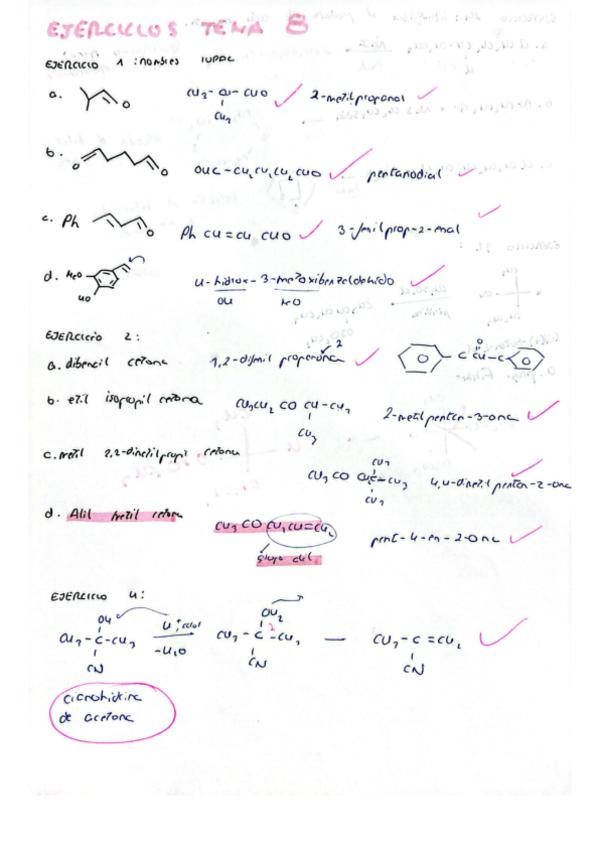 EJERCICIOS TEMA 8
EJERCICIO 1: nombres IUPAC
a. O CH3 - CH - CHO 2-metilpropanal
CH3
b. O O OHC - CH2 CH2 CH2 CHO pentanodial
c. Ph O Ph CH = CH, CHO 3-fenilprop-2-enal
d. MeO HO 4-hidroxi-3-metoxibenzaldehido
OH MeO
EJERCICIO 2:
a. dibencil cetona 1,2-difenil propanona 2 O C CH - C
b. etil isopropil cetona CH3CH2 CO CH - CH3 2-metilpentan-3-ona
CH3
c. metil 2,2-dimetilpropil cetona
CH3 CO CH2C-CH3 4,4-dimetil pentan-2-ona
CH3
CH3
d. Alil metil cetona CH3 CO CH2 CH=CH2 pent-4-en-2-ona
grupo alil.
EJERCICIO 4:
OH H+, calor OH2
CH3-C-CH3 -H2O CH3-C-CH3 — CH3-C=CH2
CN CN CN
cianohidrina
de acetona